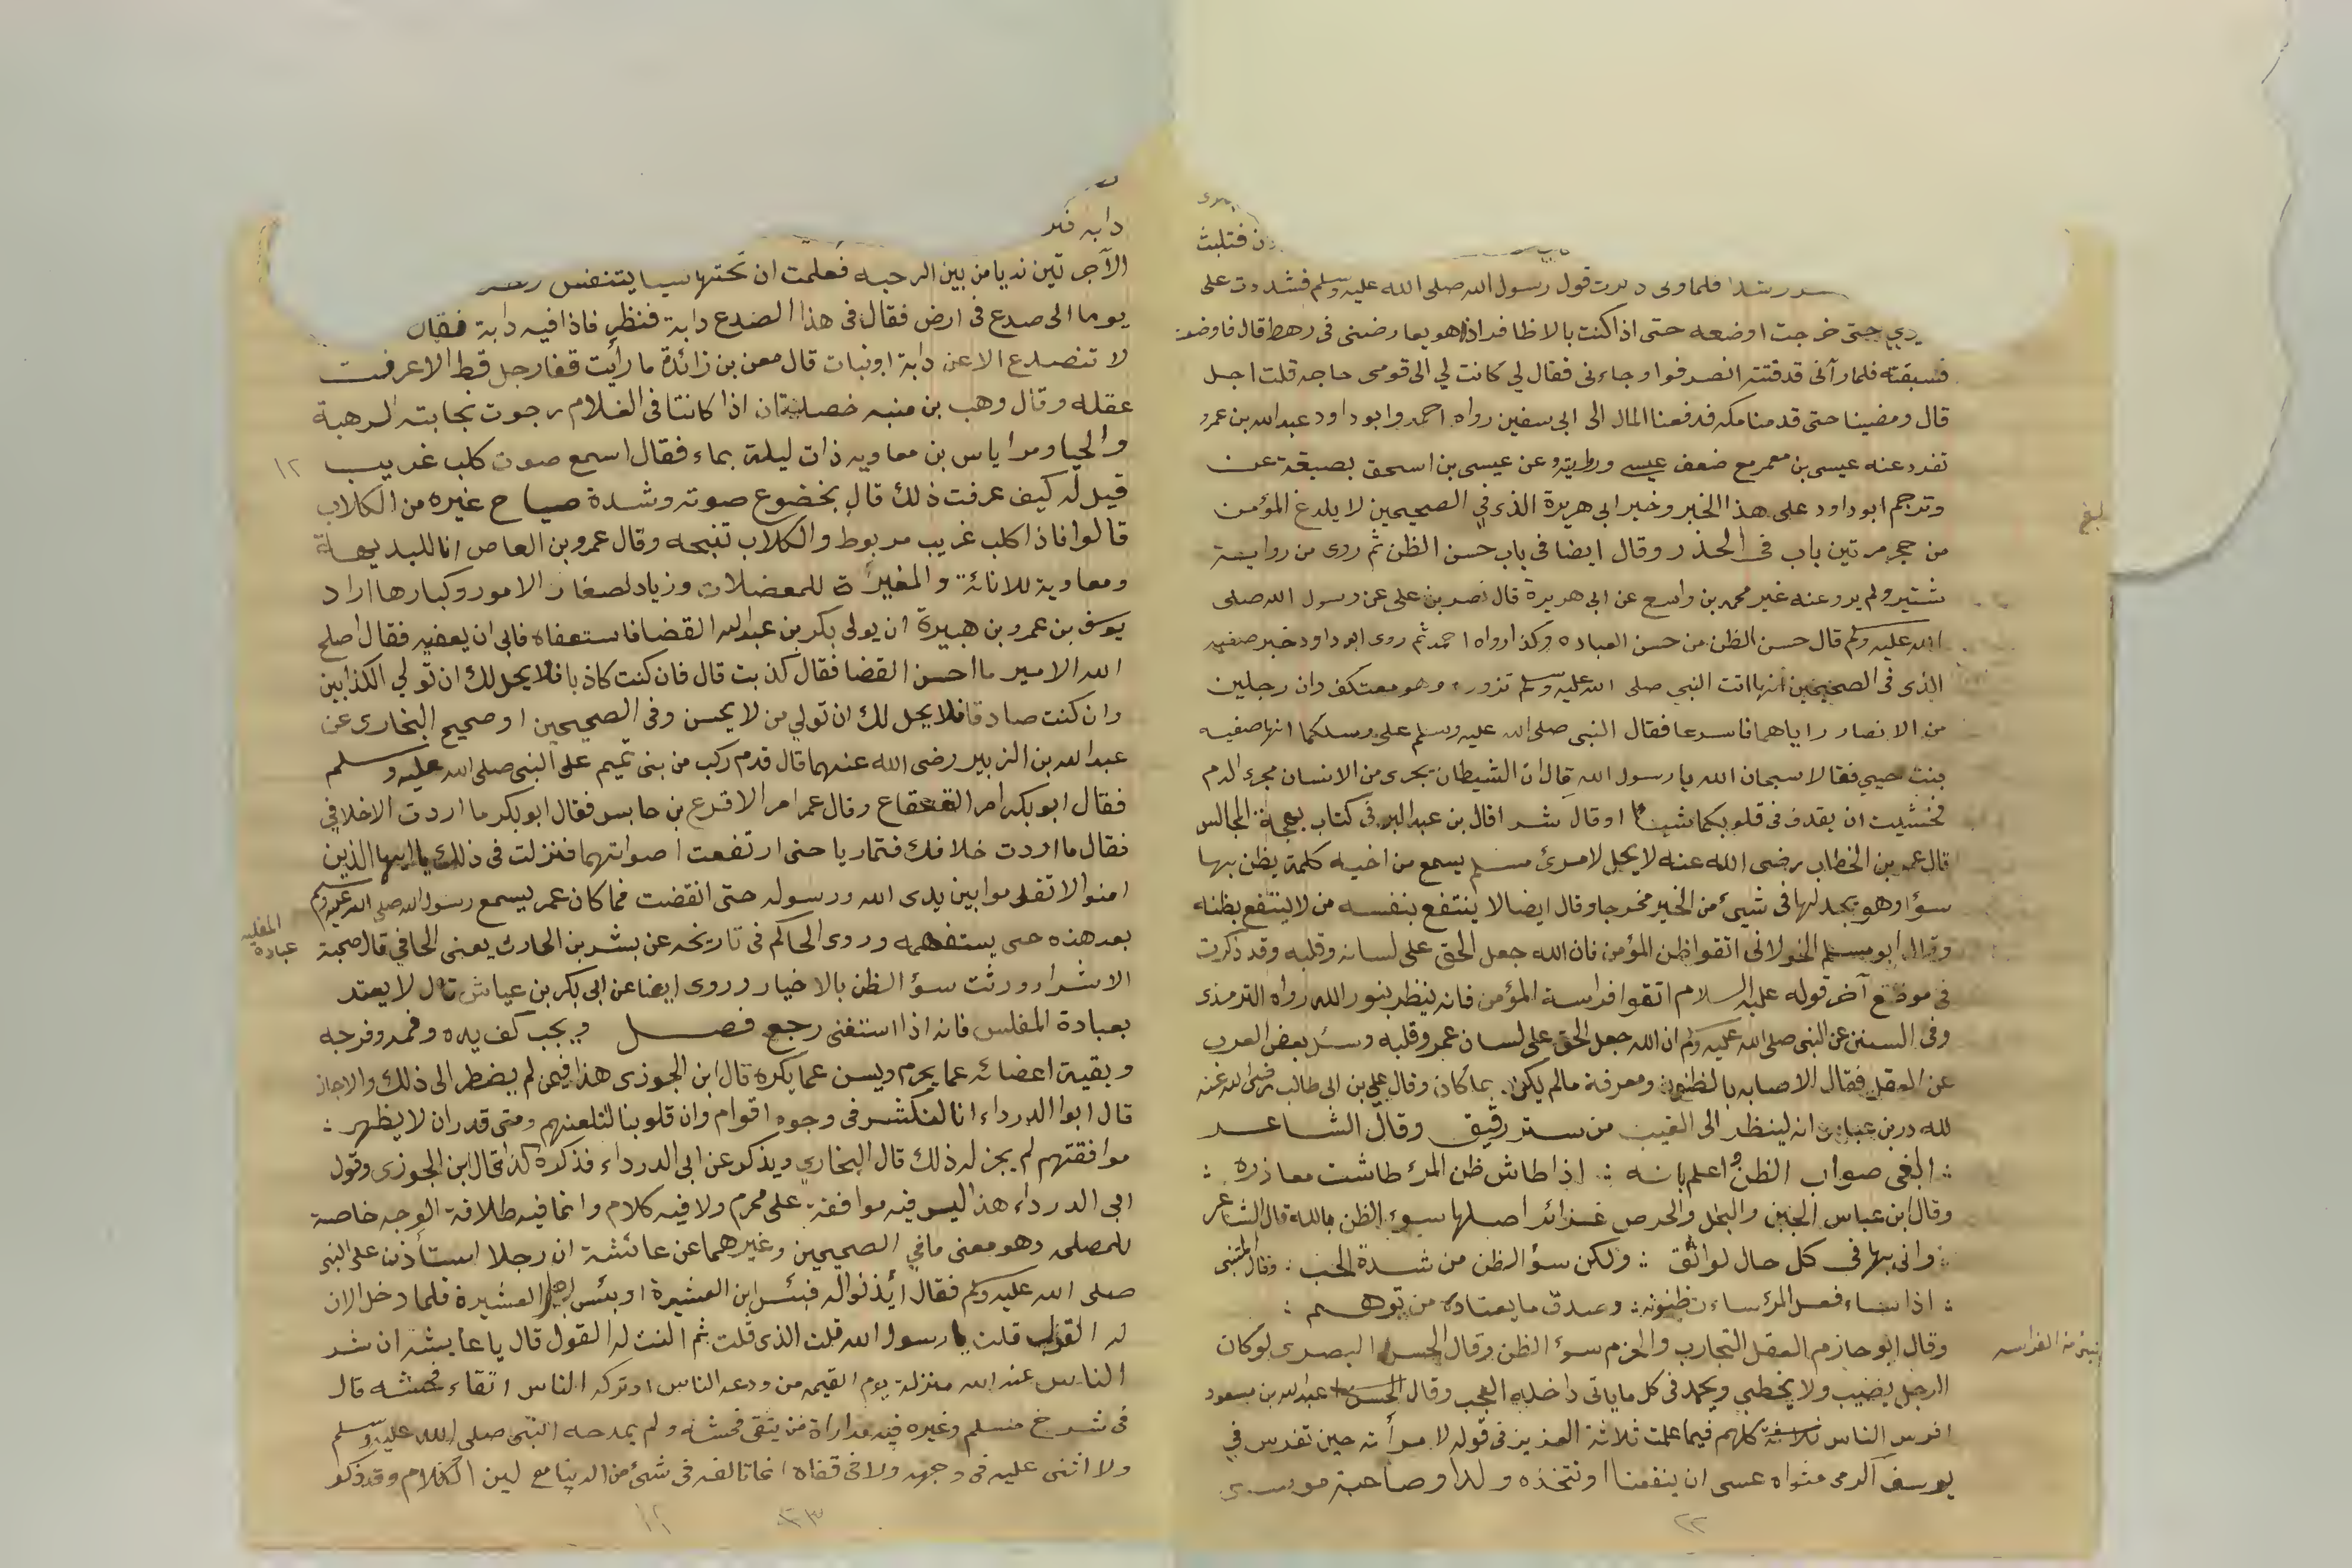 فتلبث
رشدا فلما ولى ذكرت قول رسول الله صلى الله عليه وسلم فشددت على
حتى خرجت اوضعه حتى اذا كنت بالاظافر اذا هو يعارضنى فى رهط قال فاوضعت
فسبقته فلما رآنى قد فتته انصرفوا وجاءنى فقال لي كانت لي الى قومى حاجه قلت اجل
قال ومضينا حتى قدمنا مكه فدفعنا المال الى ابى سفين رواه احمد وابو داود عبد الله بن عمرو
تفرد عنه عيسى بن معمر مع ضعف عيسى وعن عيسى بن اسحق بصيغة عن
وترجم ابو داود على هذا الخبر وخبر ابى هريرة الذى في الصحيحين لا يلدغ المؤمن
من حجر مرتين باب فى الحذر وقال ايضا فى باب حسن الظن ثم روى من رواية
شتير ولم يرو عنه غير محمد بن واسع عن ابى هريرة قال نصر بن على عن رسول الله صلى
الله عليه وسلم قال حسن الظن من حسن العباده وكذا رواه احمد ثم روى ابو داود خبر صفيه
الذى فى الصحيحين انها اتت النبي صلى الله عليه وسلم تزوره وهو معتكف وان رجلين
من الانصار راياهما فاسرعا فقال النبى صلى الله عليه وسلم على رسلكما انها صفيه
بنت حيي فقالا سبحان الله يا رسول الله قال ان الشيطان يجرى من الانسان مجرى الدم
فخشيت ان يقذف فى قلوبكما شيئا او قال شرا قال بن عبد البر فى كتاب بهجة المجالس
قال عمر بن الخطاب رضى الله عنه لا يحل لامرئ مسلم يسمع من اخيه كلمة يظن بها
سؤا وهو يجد لها فى شيئ من الخير مخرجا وقال ايضا لا ينتفع بنفسه من لا ينتفع بظنه
وقال ابو مسلم الخولانى اتقوا ظن المؤمن فان الله جعل الحق على لسانه وقلبه وقد ذكرت
فى موضع آخر قوله عليه السلام اتقوا فراسة المؤمن فانه ينظر بنور الله رواه الترمذى
وفى السنن عن النبى صلى الله عليه وسلم ان الله جعل الحق على لسان عمر وقلبه وسئل بعض العرب
عن العقل فقال الاصابه بالظنون ومعرفة ما لم يكن بما كان وقال علي بن ابى طالب رضى الله عنه
لله در بن عباس انه لينظر الى الغيب من ستر رقيق وقال الشاعر
∴ ابغى صواب الظن واعلم بانه ∴ اذا طاش ظن المرئ طاشت معاذره ∴
وقال ابن عباس الجبن والبخل والحرص غرائز اصلها سوء الظن بالله قال الشاعر
∴ وانى بها فى كل حال لواثق ∴ ولكن سؤ الظن من شدة الحب ∴ وقال المتنبى
∴ اذا ساء فعل المرء ساءت ظنونه ∴ وصدق ما يعتاده من توهم ∴
وقال ابو حازم العقل التجارب والحزم سوء الظن وقال الحسن البصرى لو كان
الرجل يصيب ولا يخطى ويحمد فى كل ما ياتى داخله العجب وقال عبد الله بن مسعود
افرس الناس كلهم فيما علمت ثلاثة العزيز فى قوله لامرأته حين تفرس في
يوسف اكرمى مثواه عسى ان ينفعنا او نتخذه ولدا وصاحبة موسى
بلغ
الفراسه
٢٢
دابه
الآجرتين نديا من بين الرحبه فعلمت ان تحتها شيا يتنفس
يوما الى صدع فى ارض فقال فى هذا الصدع دابة فنظر فاذا فيه دابة فقال
لا تنصدع الا عن دابة او نبات قال معن بن زائدة ما رأيت قفا رجل قط الا عرفت
عقله وقال وهب بن منبه خصلتان اذا كانتا فى الغلام رجوت نجابته الرهبة
والحيا ومر اياس بن معاويه ذات ليلة بماء فقال اسمع صوت كلب غريب
قيل له كيف عرفت ذلك قال بخضوع صوته وشدة صياح غيره من الكلاب
قالوا فاذا كلب غريب مربوط والكلاب تنبحه وقال عمرو بن العاص انا للبديهة
ومعاوية للاناة والمغيرة للمعضلات وزياد لصغار الامور وكبارها اراد
يوسف بن عمرو بن هبيرة ان يولى بكر بن عبد الله القضا فاستعفاه فابى ان يعفيه فقال اصلح
الله الامير ما احسن القضا فقال كذبت قال فان كنت كاذبا فلا يحل لك ان تولي الكذابين
وان كنت صادقا فلا يحل لك ان تولي من لا يحسن وفى الصحيحين او صحيح البخارى عن
عبد الله بن الزبير رضى الله عنهما قال قدم ركب من بنى تميم على النبى صلى الله عليه وسلم
فقال ابو بكر امر القعقاع وقال عمر امر الاقرع بن حابس فقال ابو بكر ما اردت الا خلافي
فقال ما اردت خلافك فتماريا حتى ارتفعت اصواتهما فنزلت فى ذلك يا ايها الذين
امنوا لا تقدموا بين يدى الله ورسوله حتى انقضت فما كان عمر يسمع رسول الله صلى الله عليه وسلم
بعد هذه حتى يستفهمه وروى الحاكم فى تاريخه عن بشر بن الحارث يعنى الحافي قال صحبة
الاشرار ورثت سؤ الظن بالاخيار وروى ايضا عن ابى بكر بن عياش قال لا يعتد
بعبادة المفلس فانه اذا استغنى رجع فصل ويجب كف يده وفمه وفرجه
وبقية اعضائه عما يحرم ويسن عما يكره قال ابن الجوزى هذا فيمن لم يضطر الى ذلك والا جاز
قال ابو الدرداء انا لنكشر فى وجوه اقوام وان قلوبنا لتلعنهم ومتى قدر ان لا يظهر ∴
موافقتهم لم يجز له ذلك قال البخاري ويذكر عن ابى الدرداء فذكره كذا قال ابن الجوزى وقول
ابى الدرداء هذا ليس فيه موافقة على محرم ولا فيه كلام وانما فيه طلاقة الوجه خاصة
للمصلحه وهو معنى ما في الصحيحين وغيرهما عن عائشة ان رجلا استأذن على النبى
صلى الله عليه وسلم فقال أئذنوا له فبئس ابن العشيرة او بئس العشيرة فلما دخل الان
له القول قلت يا رسول الله قلت الذى قلت ثم النت له القول قال يا عايشه ان شر
الناس عند الله منزلة يوم القيمه من ودعه الناس او تركه الناس اتقاء فحشه قال
فى شرح مسلم وغيره فيه مداراة من يتقى فحشه ولم يمدحه النبى صلى الله عليه وسلم
ولا اثنى عليه فى وجهه ولا فى قفاه انما تالفه فى شئ من الدنيا مع لين الكلام وقد ذكر
١٢
المفلس
عبادة
٢٣
١٢